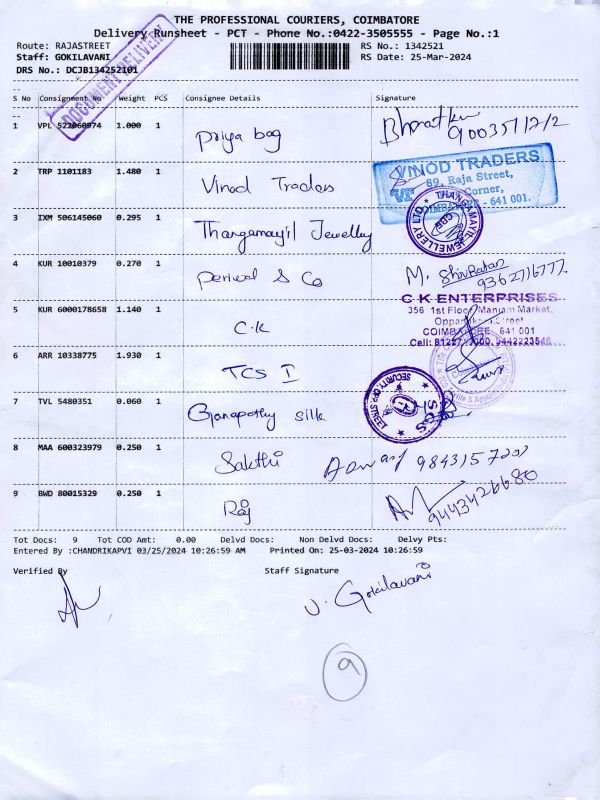 THE PROFESSIONAL COURIERS, COIMBATORE
Delivery Runsheet - PCT - Phone No.:0422-3505555 - Page No.:1
Route: RAJASTREET
RS No.: 1342521
Staff: GOKILAVANI
RS Date: 25-Mar-2024
DRS No.: DCJB134252101
DOCUMENT DELIVERY
S No Consignment No Weight PCS Consignee Details Signature
1 VPL 522060974 1.000 1 Priya bag
2 TRP 1101183 1.480 1 Vinod Traders
VINOD TRADERS
89, Raja Street,
Corner,
COIMBATORE - 641 001.
3 IXM 506145060 0.295 1 Thangamayil Jewellery
THANGAMAYIL JEWELLERY LTD
CBE
4 KUR 10010379 0.270 1 Periwal & Co M. ShivRatan
9362716777.
5 KUR 6000178658 1.140 1 C.K
C K ENTERPRISES
356 1st Floor Manjam Market,
Street
COIMBATORE 641 001
9442223546
6 ARR 10338775 1.930 1 TCS I
7 TVL 5480351 0.060 1 Ganapathy silk
SECURITY
8 MAA 600323979 0.250 1 Sakthi
9 BWD 80015329 0.250 1 Raj 9443426680
Tot Docs: 9 Tot COD Amt: 0.00 Delvd Docs: Non Delvd Docs: Delvy Pts:
Entered By :CHANDRIKAPVI 03/25/2024 10:26:59 AM Printed On: 25-03-2024 10:26:59
Verified By Staff Signature
V. Gokilavani
9